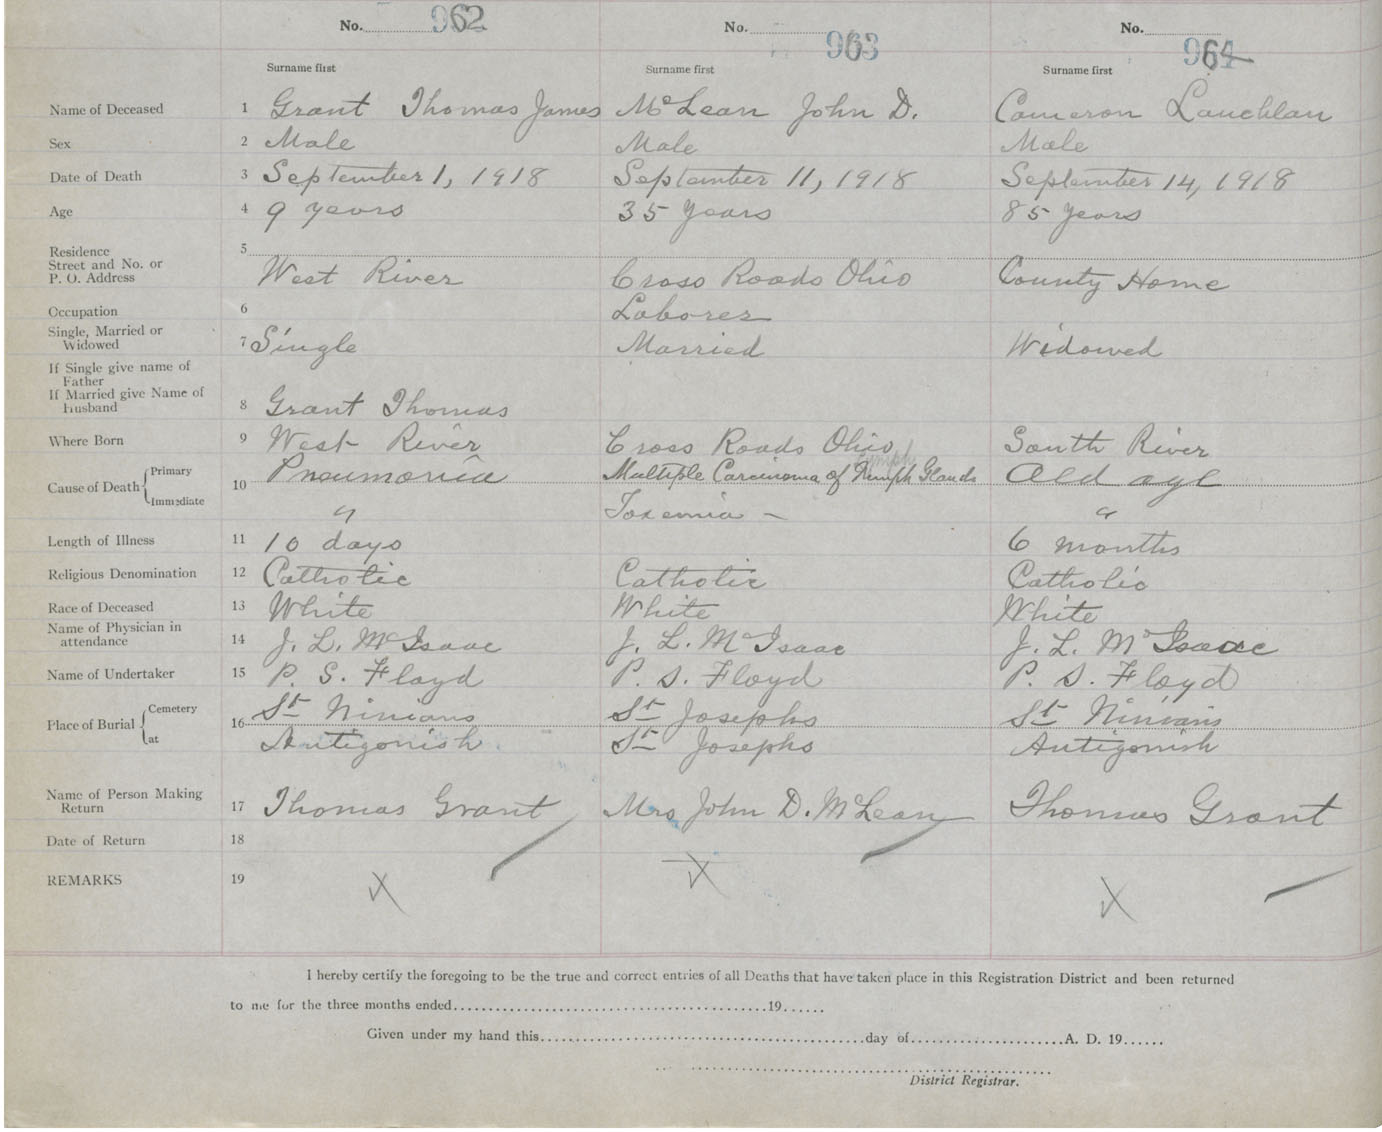 No. 962 No. 963 No. 964
Surname first Surname first Surname first
Name of Deceased 1 Grant Thomas James McLean John D. Cameron Lauchlan
Sex 2 Male Male Male
Date of Death 3 September 1, 1918 September 11, 1918 September 14, 1918
Age 4 9 years 35 Years 85 Years
Residence 5
Street and No. or
P. O. Address West River Cross Roads Ohio County Home
Occupation 6 Laborer
Single, Married or
Widowed 7 Single Married Widowed
If Single give name of
Father
If Married give Name of
Husband 8 Grant Thomas
Where Born 9 West River Cross Roads Ohio South River
lymph
Cause of Death Primary 10 Pneumonia Multiple Carcinoma of Nymph Glands Old age
Immediate " Toxemia - "
Length of Illness 11 10 days 6 months
Religious Denomination 12 Catholic Catholic Catholic
Race of Deceased 13 White White White
Name of Physician in
attendance 14 J. L. McIsaac J. L. McIsaac J. L. McIsaac
Name of Undertaker 15 P. S. Floyd P. S. Floyd P. S. Floyd
Place of Burial Cemetery 16 St Ninians St Josephs St Ninians
at Antigonish St Josephs Antigonish
Name of Person Making
Return 17 Thomas Grant Mrs John D. McLean Thomas Grant
Date of Return 18
REMARKS 19 X X X
I hereby certify the foregoing to be the true and correct entries of all Deaths that have taken place in this Registration District and been returned
to me for the three months ended........................................19......
Given under my hand this........................................day of....................A. D. 19......
District Registrar.